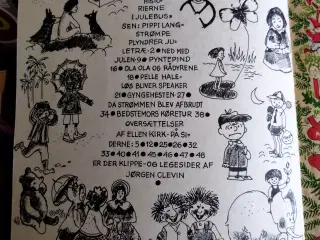 HISTO-
RIERNE
I JULEBUS=
SEN: PIPPI LANG-
STRØMPE
PLYNDRER JU-
LETRÆ-2 • NED MED
JULEN-9 • PYNTEPIND
16 • OLA OLA OG RÅDYRENE
18 • PELLE HALE-
LØS BLIVER SPEAKER
21 • GYNGEHESTEN-27 •
DA STRØMMEN BLEV AFBRUDT
34 • BEDSTEMORS KØRETUR 38 •
OVERSÆTTELSER
AF ELLEN KIRK • PÅ SI=
DERNE: 5 • 12 • 25 • 26 • 32
33 • 40 • 41 • 45 • 46 • 47 • 48
ER DER KLIPPE-OG LEGESIDER AF
JØRGEN CLEVIN